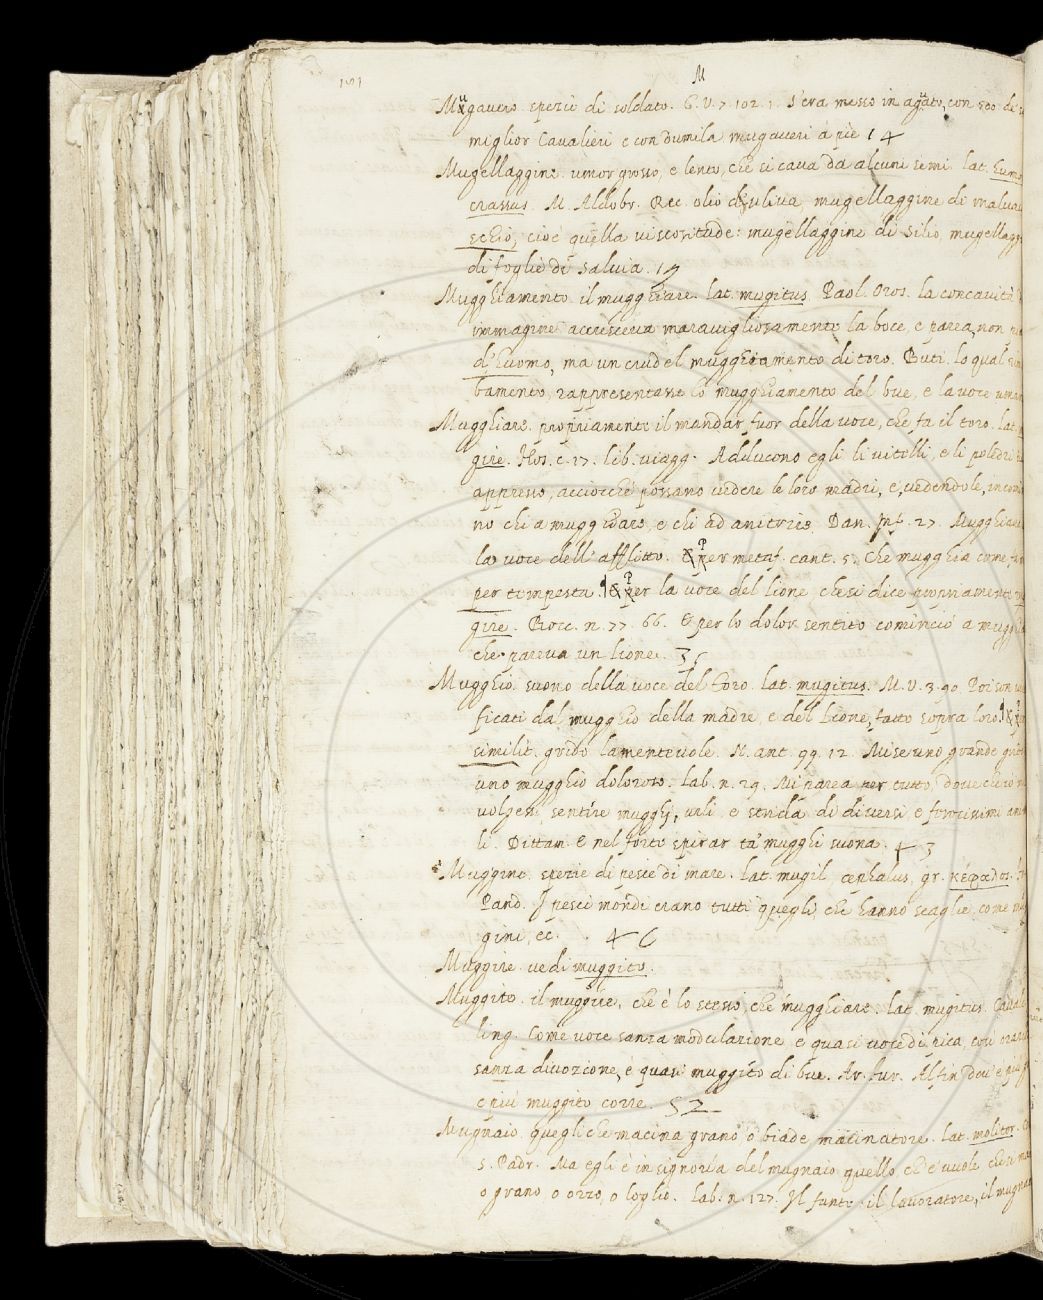 151
M
Mugavero. spezie di soldato. G. V. 7. 102. 1. S'era messo in aguato, con seo de'
miglior Cavalieri e con dumila mugaveri a pie 14
Mugellaggine. umor grosso, e lento, che si cava da alcuni semi. lat. humor
crassus. M. Aldobr. Rec. olio d'uliva, mugellaggine di malva
ecchio, cioè quella viscositade: mugellaggine di silio, mugellagg
di foglie di salvia. 19
Mugghiamento. il mugghiare. lat. mugitus. Paol. Oros. la concavità
immagine accresceva maravigliosamente la boce, e parea, non
d'huomo, ma un crudel mugghiamento di toro. Buti. lo qual
bamento, rappresentasse lo mugghiamento del bue, e la voce uman
Mugghiare. propriamente il mandar fuor della voce, che fa il toro. lat.
gire. Hos. c. 17. lib. viagg. Adducono egli li vitelli, e li poledri
appresso, acciocché possano vedere le loro madri, e, vedendole, incomi
no chi a mugghiare, e chi ad anitrire. Dan. Inf. 27. Mugghiava
la voce dell'afflitto. Per metaf. cant. 5. Che mugghia come
per tempesta. ¶ Per la voce del lione che si dice propriamente
gire. Bocc. n. 77. 66. E per lo dolor sentito cominciò a mugghia
che pareva un lione. 35
Mugghio. suono della voce del toro. lat. mugitus. M. V. 3. 90. Poi son
ficati dal mugghio della madre, e del lione, fatto sopra loro. ¶
similit. grido lamentevole. N. ant. 99. 12. Mise uno grande
uno mugghio doloroso. Lab. n. 29. Mi parea per tutto, dove
volgessi, sentire mugghj, urli e strida di diversi e ferocissimi an
li. Dittam. E nel forte spirar ta' mugghi suona. 43
Muggine. spezie di pesce di mare. lat. mugil, cephalus, gr. κέφαλος.
Pand. I pesci mondi erano tutti quegli, che hanno scaglie, come
gini, ec. 46
Muggire. vedi muggito.
Muggito. il muggire, che è lo stesso, che mugghiare. lat. mugitus. Cavalc.
ling. Come voce sanza modulazione, e quasi voce di pica, così
sanza divozione, e quasi muggito di bue. Ar. Fur. Alfin dov'e
e piu muggito corre. 52
Mugnaio. quegli che macina grano o biade macinatore. lat. molitor.
S. Padr. Ma egli è in signoria del mugnaio quello che e' vuole
o grano o orzo, o loglio. Lab. n. 127. Il fante. il lavoratore, il mugna